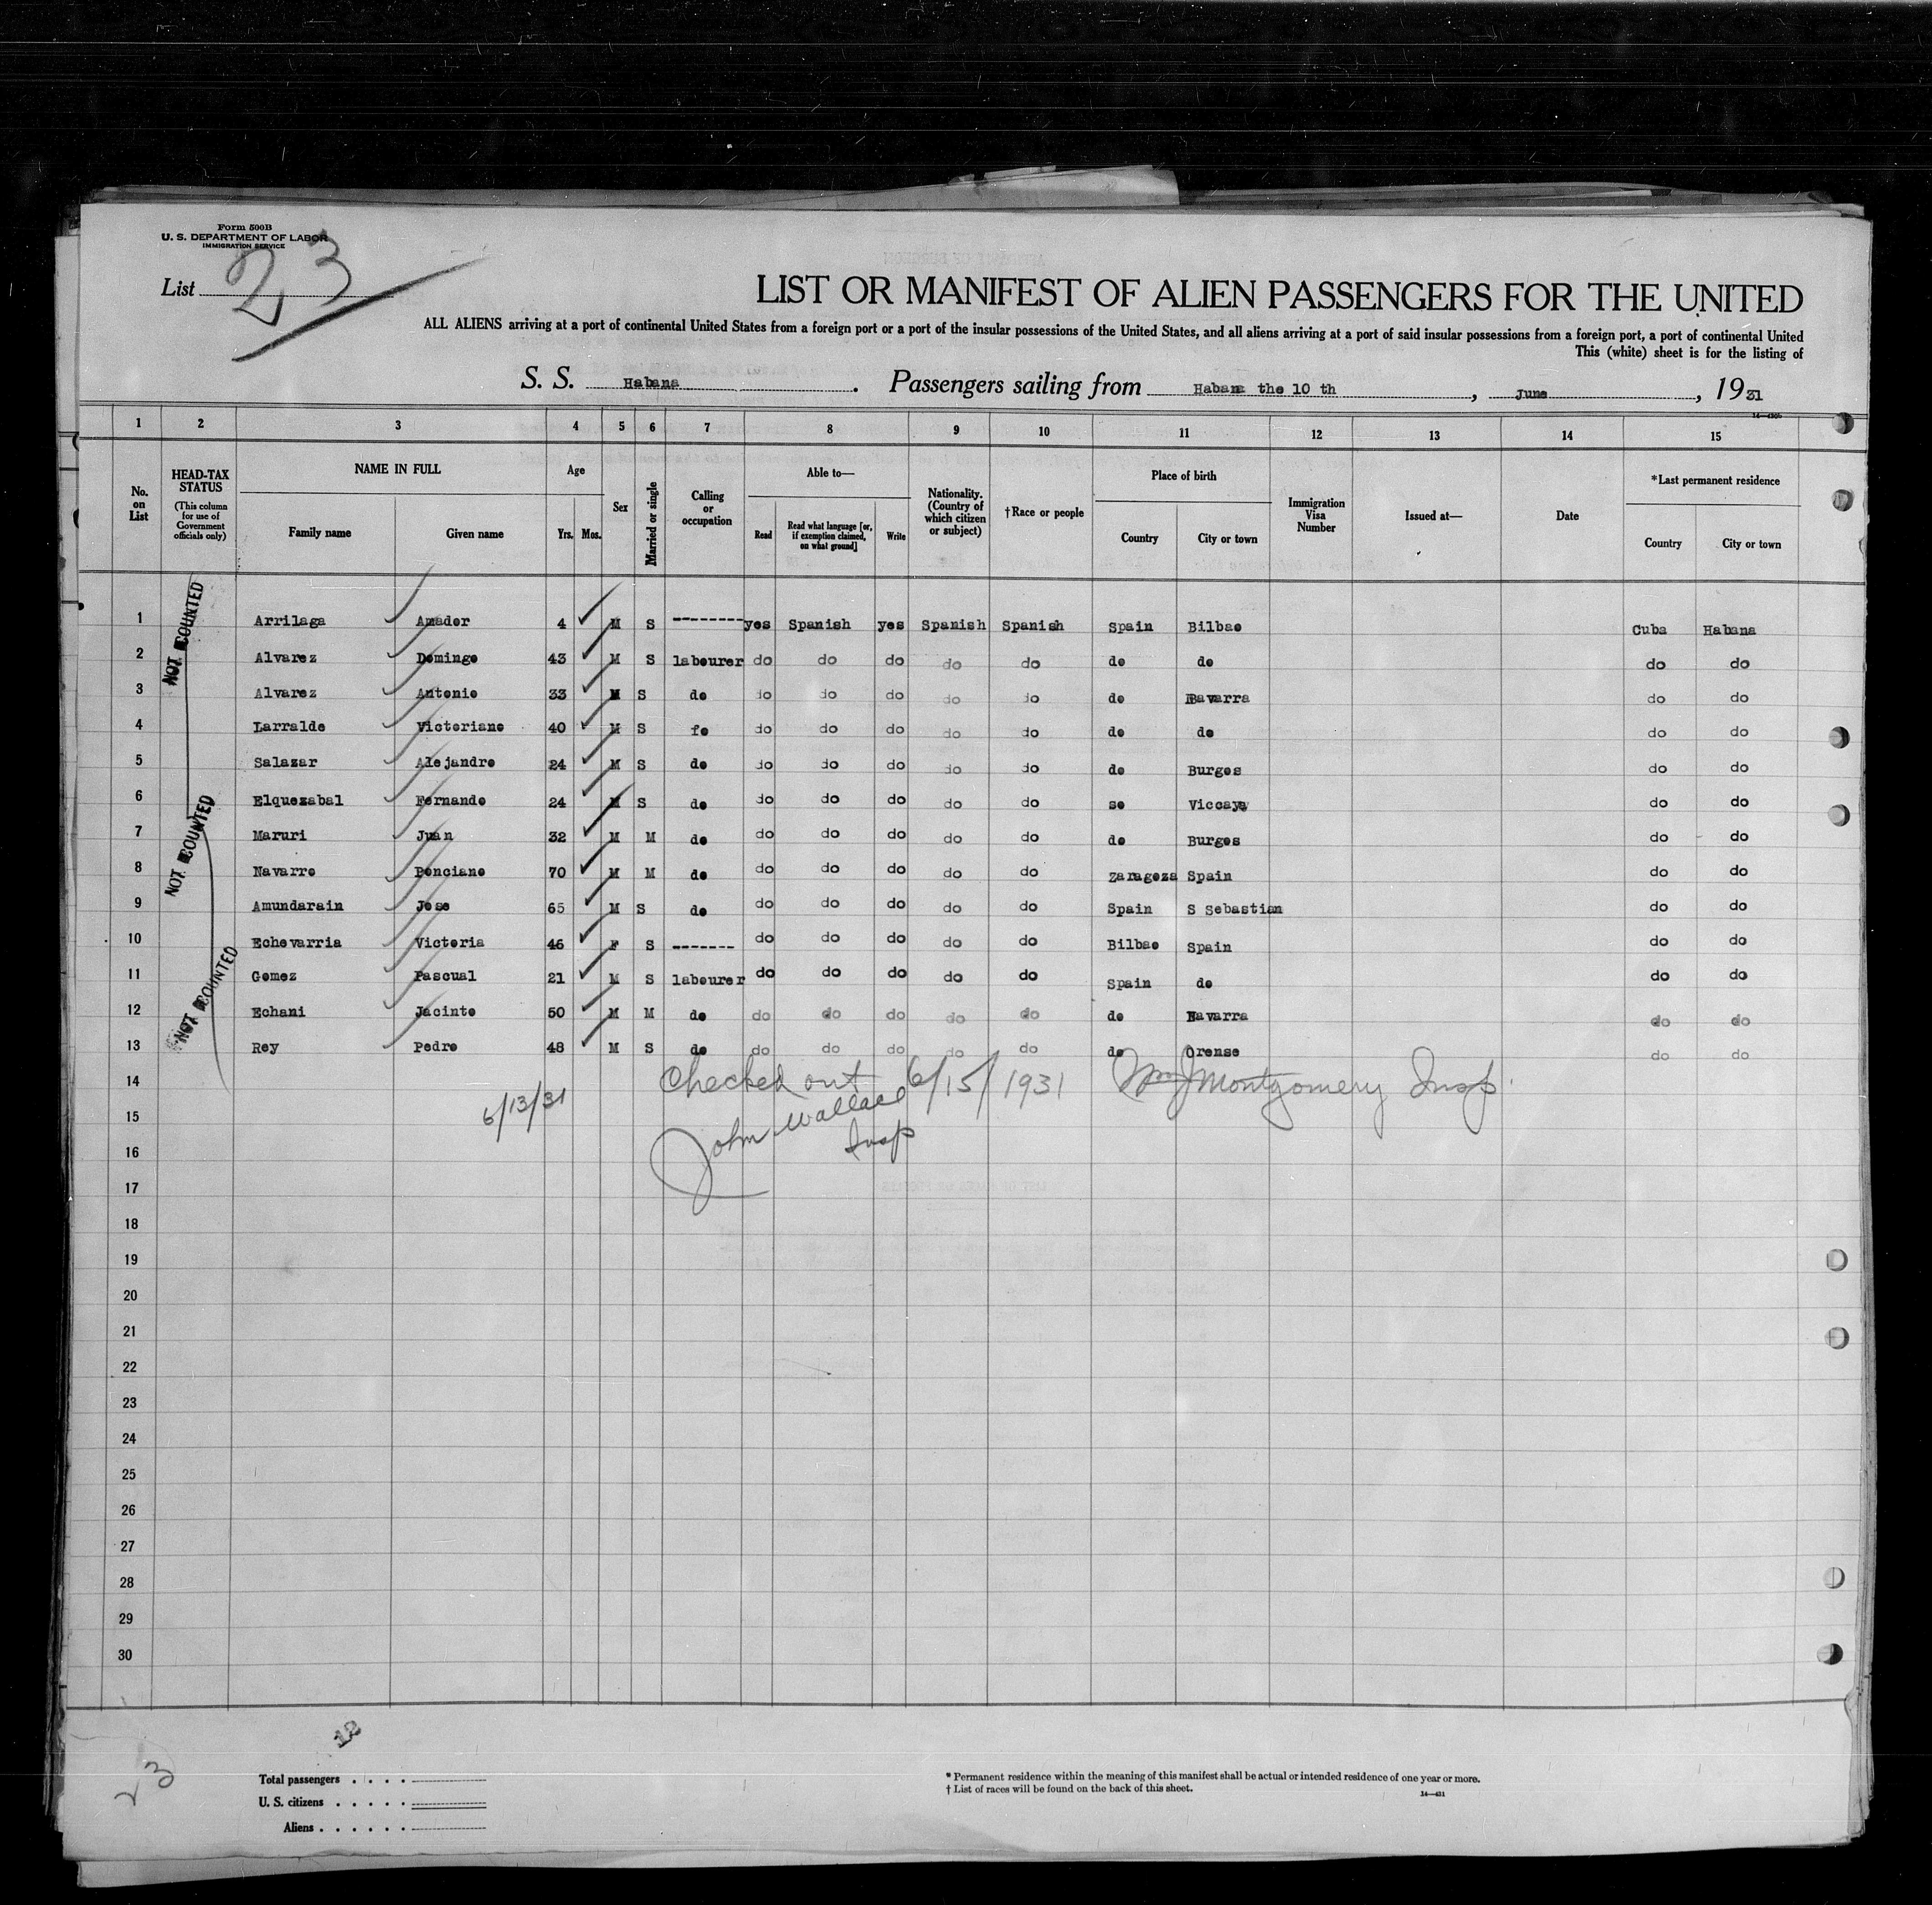 Form 500B
U. S. DEPARTMENT OF LABOR
IMMIGRATION SERVICE
List 23
LIST OR MANIFEST OF ALIEN PASSENGERS FOR THE UNITED
ALL ALIENS arriving at a port of continental United States from a foreign port or a port of the insular possessions of the United States, and all aliens arriving at a port of said insular possessions from a foreign port, a port of continental United
This (white) sheet is for the listing of
S. S. Habana. Passengers sailing from Habana the 10 th, June, 1931
1 2 3 4 5 6 7 8 9 10 11 12 13 14 15
No. on List
HEAD-TAX STATUS (This column for use of Government officials only)
NAME IN FULL Family name Given name
Age Yrs. Mos.
Sex
Married or single
Calling or occupation
Able to— Read Read what language [or, if exemption claimed, on what ground] Write
Nationality. (Country of which citizen or subject)
†Race or people
Place of birth Country City or town
Immigration Visa Number
Issued at—
Date
*Last permanent residence Country City or town
NOT COUNTED
NOT COUNTED
NOT COUNTED
1 Arrilaga Amador 4 M S --------- yes Spanish yes Spanish Spanish Spain Bilbao Cuba Habana
2 Alvarez Domingo 43 M S labourer do do do do do do do do do
3 Alvarez Antonio 33 M S do do do do do do do Navarra do do
4 Larralde Victoriano 40 M S fo do do do do do do do do do
5 Salazar Alejandro 24 M S do do do do do do do Burgos do do
6 Elquezabal Fernando 24 M S do do do do do do so Viccaya do do
7 Maruri Juan 32 M M do do do do do do do Burgos do do
8 Navarro Ponciano 70 M M do do do do do do Zaragoza Spain do do
9 Amundarain Jose 65 M S do do do do do do Spain S Sebastian do do
10 Echevarria Victoria 46 F S ------- do do do do do Bilbao Spain do do
11 Gomez Pascual 21 M S labourer do do do do do Spain do do do
12 Echani Jacinto 50 M M do do do do do do do Navarra do do
13 Rey Pedro 48 M S do do do do do do do Orense do do
14 Checked out 6/15/1931 Wm J Montgomery Insp.
6/13/31
15 John Wallace
16 Insp
17
18
19
20
21
22
23
24
25
26
27
28
29
30
12
23
Total passengers
U. S. citizens
Aliens
* Permanent residence within the meaning of this manifest shall be actual or intended residence of one year or more.
† List of races will be found on the back of this sheet.